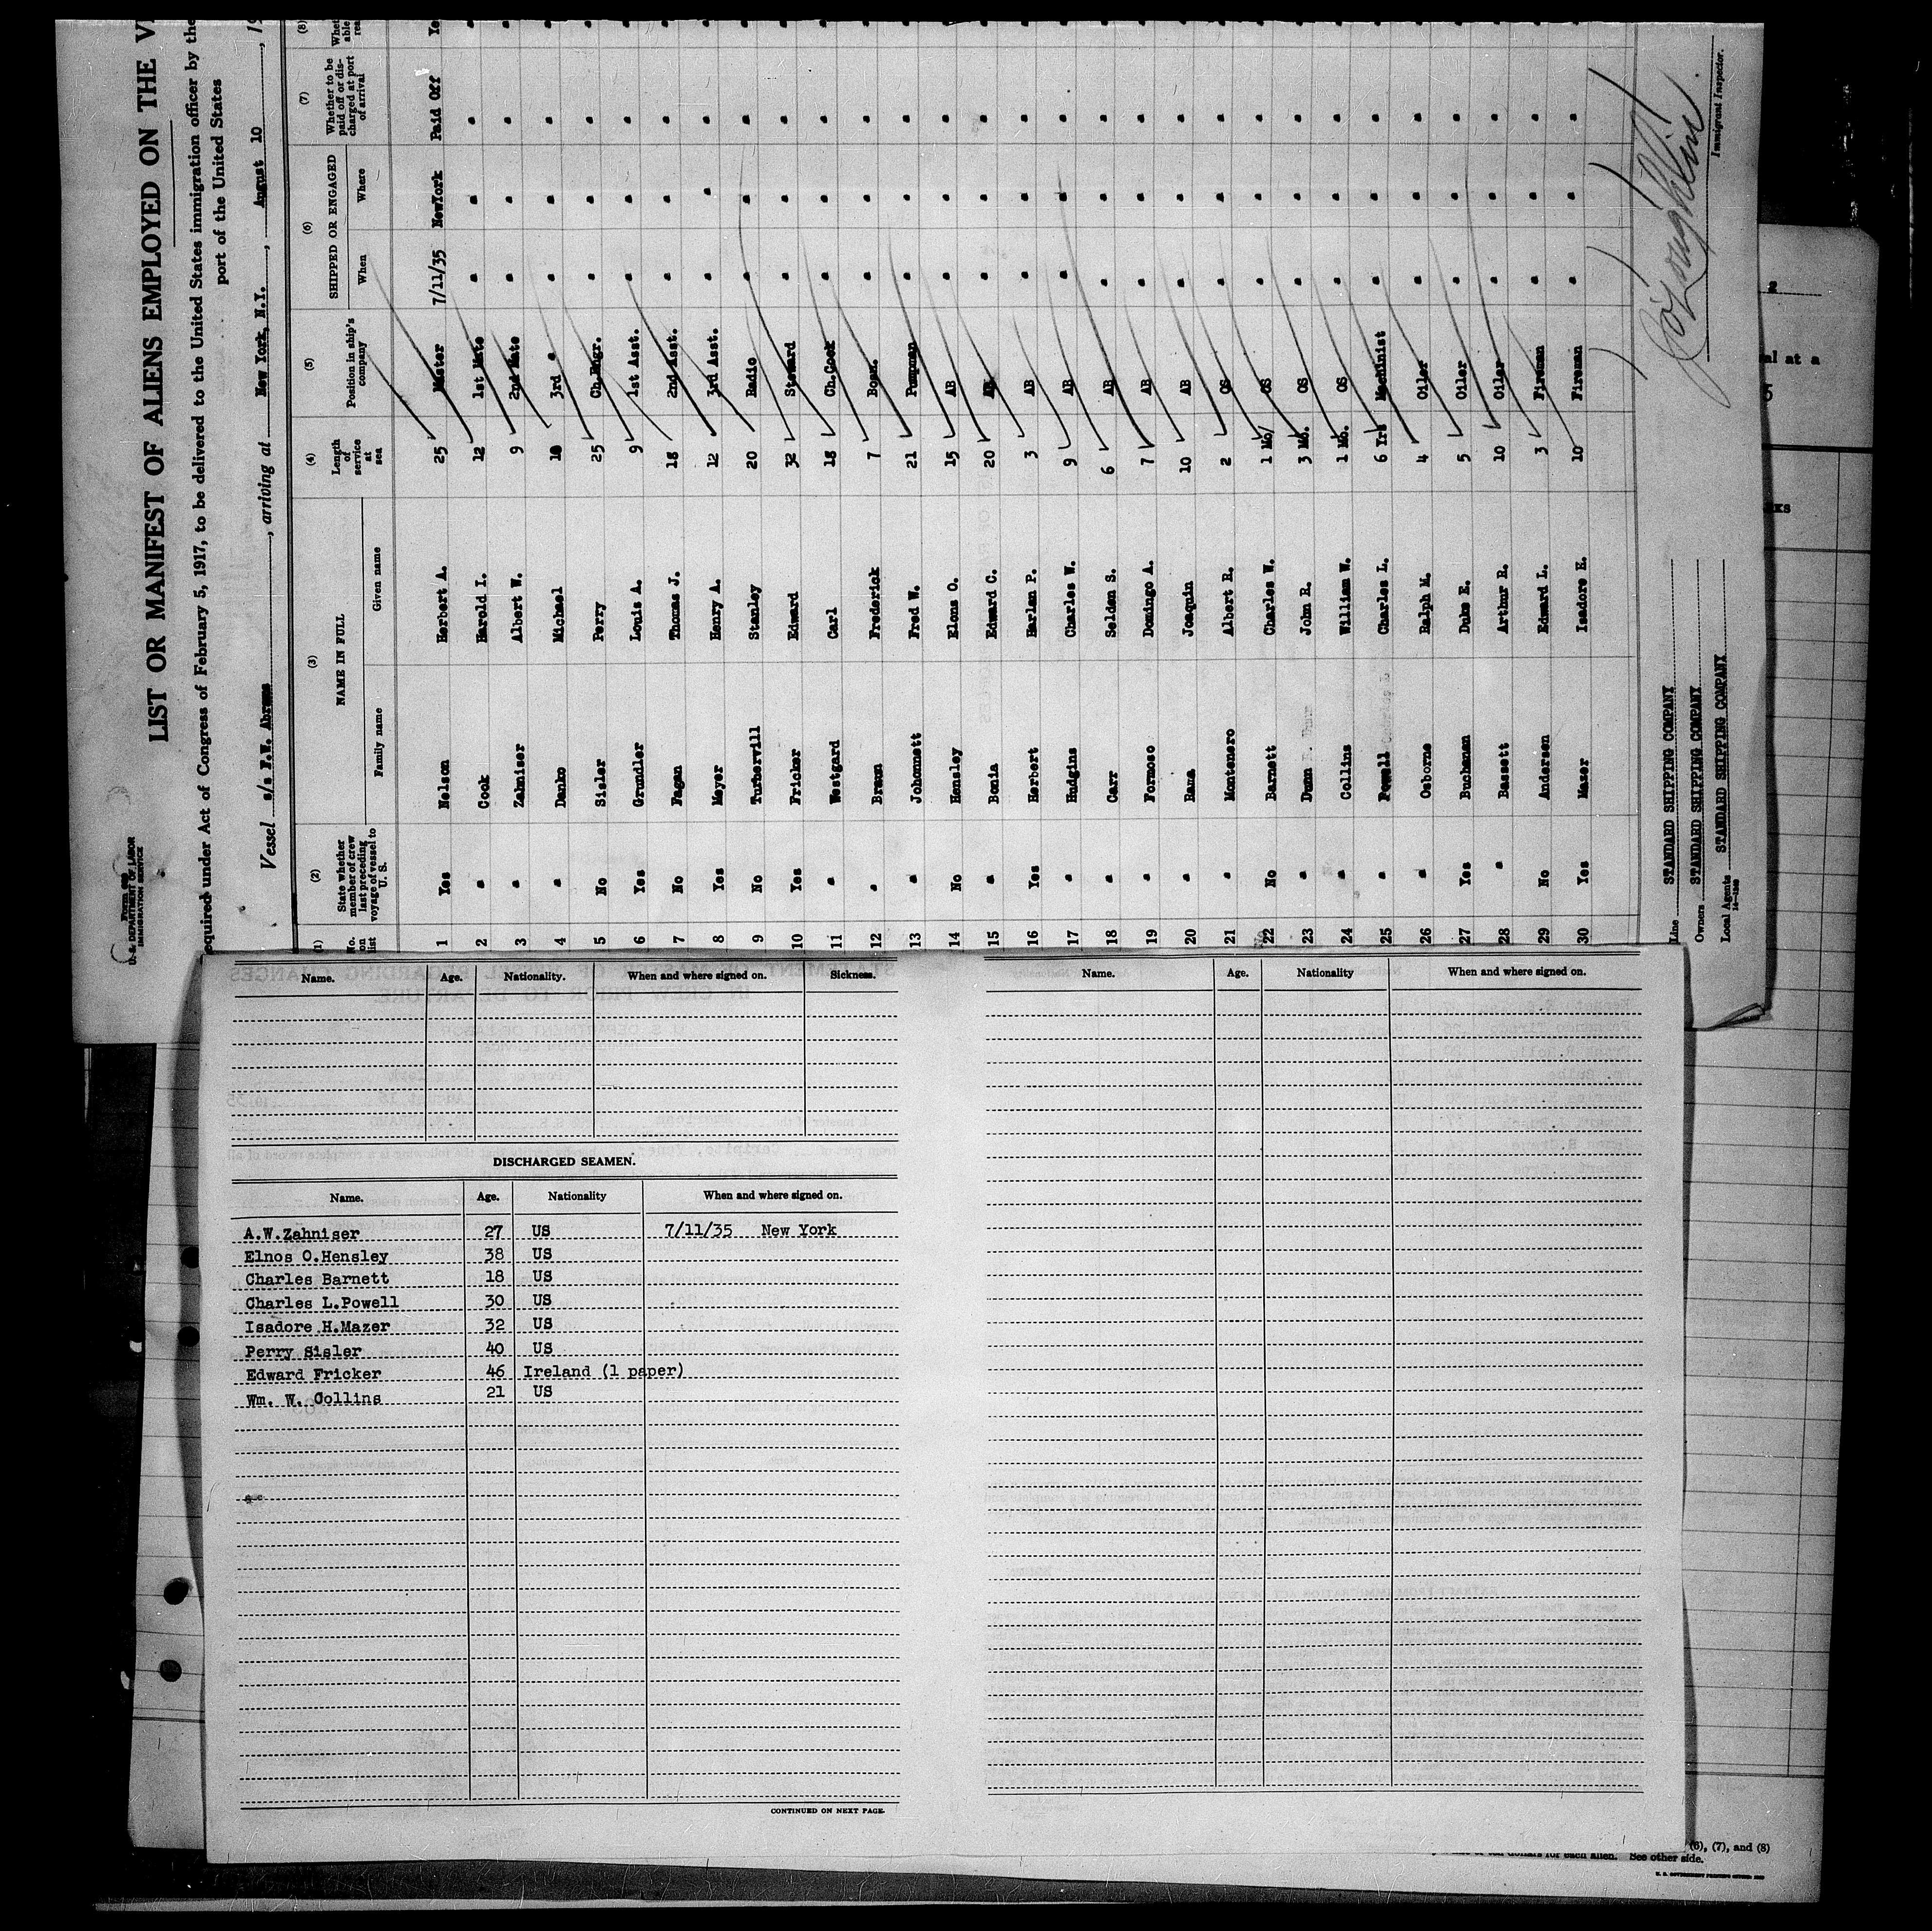 Form 689
U. S. DEPARTMENT OF LABOR
IMMIGRATION SERVICE
LIST OR MANIFEST OF ALIENS EMPLOYED ON THE
equired under Act of Congress of February 5, 1917, to be delivered to the United States immigration officer by the
port of the United States
Vessel s/s F.W. Abrams, arriving at New York, N.Y., August 10, 19
(1) (2) (3) (4) (5) (6) (7) (8)
No. on list State whether member of crew last preceding voyage of vessel to U. S. NAME IN FULL Family name Given name Length of service at sea Position in ship's company SHIPPED OR ENGAGED When Where Whether to be paid off or discharged at port of arrival
1 Yes Nelson Herbert A. 25 Master 7/11/35 NewYork Paid Off Ye
2 " Cook Harold I. 12 1st Mate " " " "
3 " Zahniser Albert W. 9 2nd Mate " " " "
4 " Danko Michael 10 3rd " " " " "
5 No Sisler Perry 25 Ch.Engr. " " " "
6 Yes Grundler Louis A. 9 1st Asst. " " " "
7 No Fagan Thomas J. 18 2nd Asst. " " " "
8 Yes Meyer Henry A. 12 3rd Asst. " " " "
9 No Turbervill Stanley 20 Radio " " " "
10 Yes Fricker Edward 32 Steward " " " "
11 " Westgard Carl 18 Ch.Cook " " " "
12 " Braun Frederick 7 Bosn. " " " "
13 " Johonnett Fred W. 21 Pumpman " " " "
14 No Hensley Elons O. 15 AB " " " "
15 " Bonia Edward C. 20 AB " " " "
16 Yes Herbert Harlan P. 3 AB " " " "
17 " Hudgins Charles W. 9 AB " " " "
18 " Carr Selden S. 6 AB " " " "
19 " Formoso Domingo A. 7 AB " " " "
20 " Rana Joaquin 10 AB " " " "
21 " Montenero Albert R. 2 OS " " " "
22 No Barnett Charles W. 1 Mo/ OS " " " "
23 " Dunn John R. 3 Mo. OS " " " "
24 " Collins William W. 1 Mo. OS " " " "
25 " Powell Charles L. 6 Yrs Machinist " " " "
26 " Osborne Ralph M. 4 Oiler " " " "
27 Yes Buchanan Duke E. 5 Oiler " " " "
28 " Bassett Arthur R. 10 Oiler " " " "
29 No Andersen Edward L. 3 Fireman " " " "
30 Yes Mazer Isadore E. 10 Fireman " " " "
Line STANDARD SHIPPING COMPANY
Owners STANDARD SHIPPING COMPANY
Local Agents STANDARD SHIPPING COMPANY
Immigrant Inspector.
Name. Age. Nationality. When and where signed on. Sickness.
DISCHARGED SEAMEN.
Name. Age. Nationality When and where signed on.
A.W.Zahniser 27 US 7/11/35 New York
Elnos O.Hensley 38 US
Charles Barnett 18 US
Charles L.Powell 30 US
Isadore H.Mazer 32 US
Perry Sisler 40 US
Edward Fricker 46 Ireland (1 paper)
Wm. W. Collins 21 US
CONTINUED ON NEXT PAGE.
Name. Age. Nationality When and where signed on.
al at a
(6), (7), and (8)
dollars for each alien. See other side.